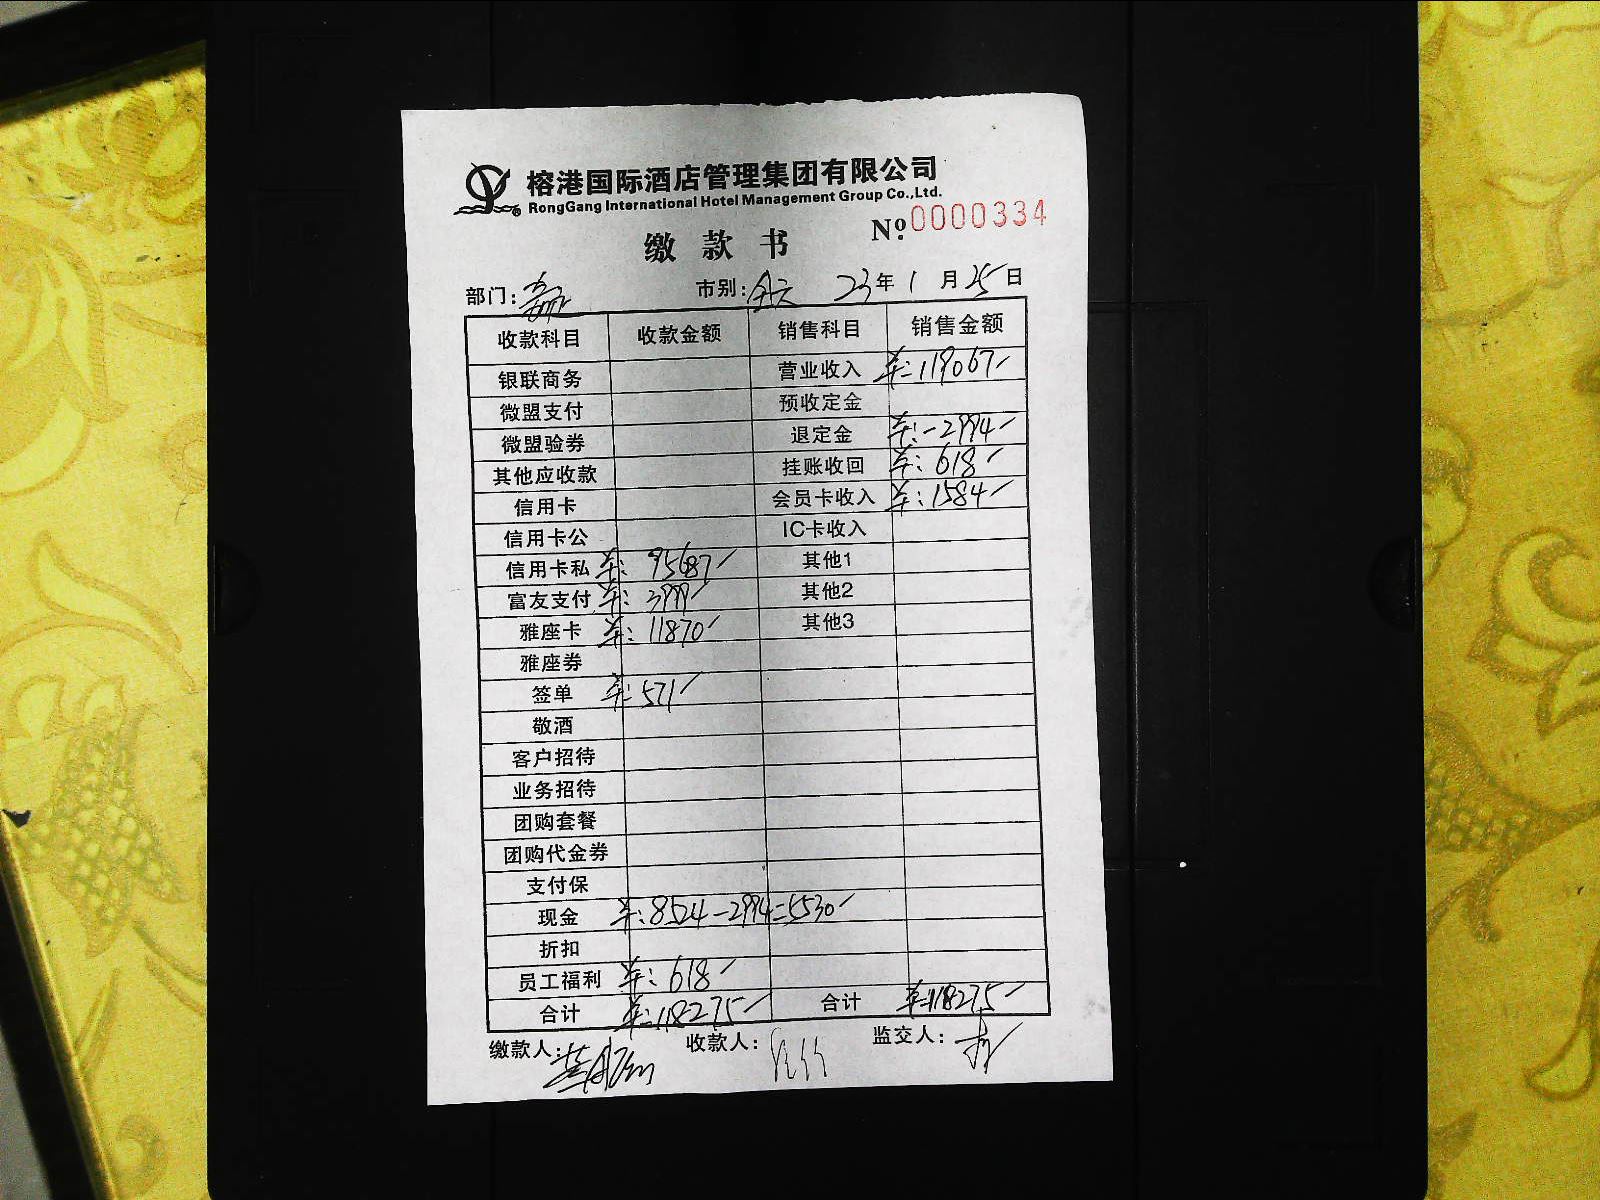 榕港国际酒店管理集团有限公司
RongGang International Hotel Management Group Co.,Ltd.
№ 0000334
缴款书
部门: 市别: 全天 23年1月25日
收款科目 收款金额 销售科目 销售金额
银联商务 营业收入 ¥: 119067
微盟支付 预收定金
微盟验券 退定金 ¥: -2994
其他应收款 挂账收回 ¥: 618
信用卡 会员卡收入 ¥: 1584
信用卡公 IC卡收入
信用卡私 ¥: 95687 其他1
富友支付 ¥: 3999 其他2
雅座卡 ¥: 11870 其他3
雅座券
签单 ¥: 571
敬酒
客户招待
业务招待
团购套餐
团购代金券
支付保
现金 ¥: 8524-2994=5530
折扣
员工福利 ¥: 618
合计 ¥: 118275 合计 ¥: 118275
缴款人: 收款人: 监交人: